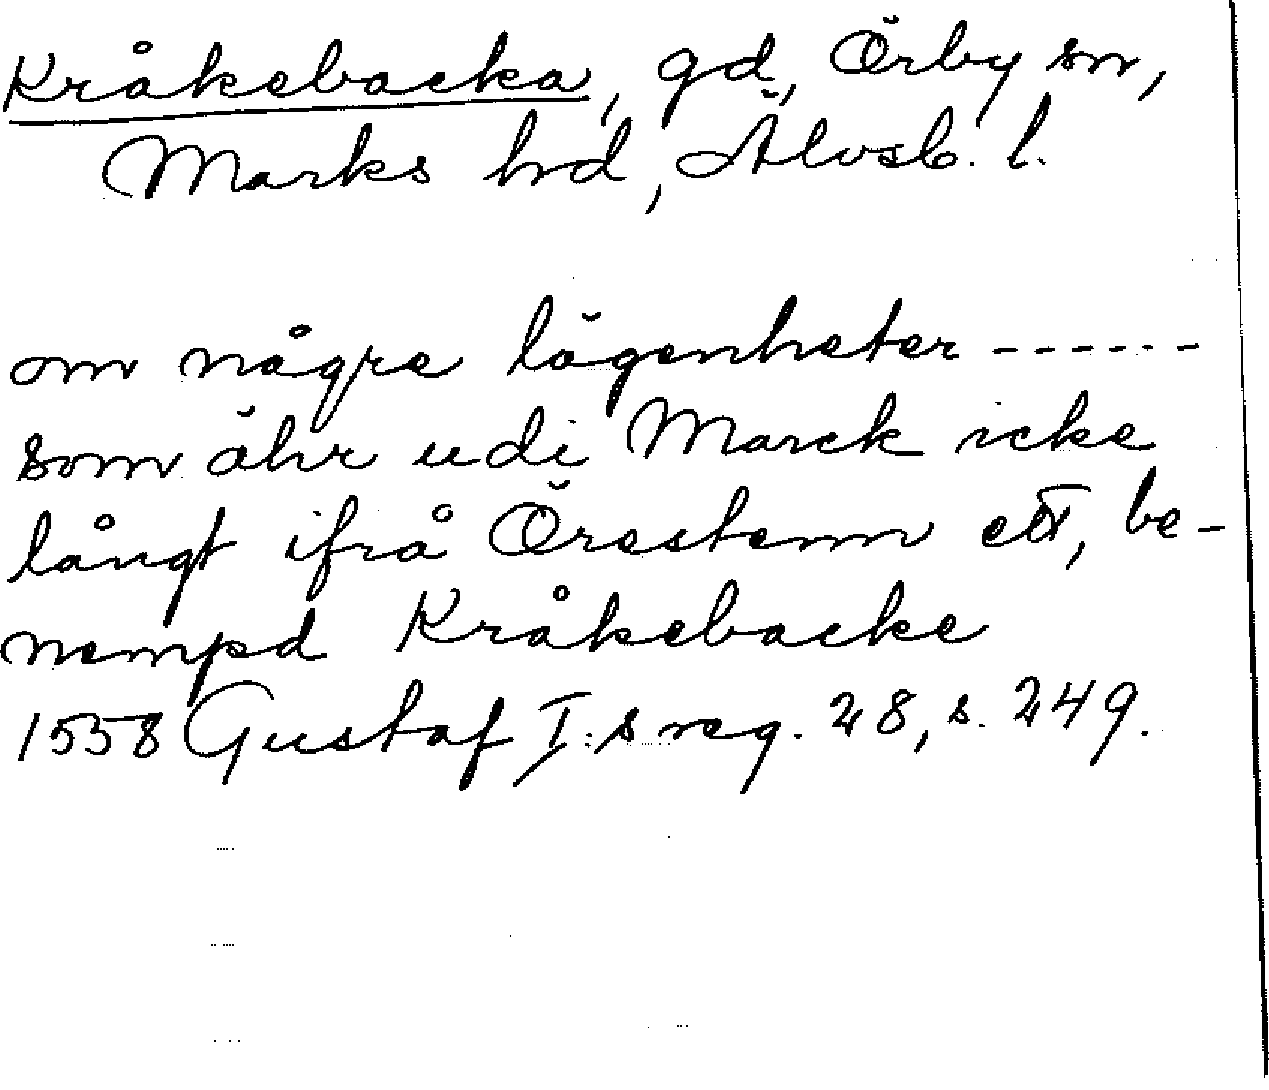 Kråkebacka, gd, Örby sn,
Marks hd, Älvsb. l.
om någre lägenheter ------
som ähr udi Marck icke
långt ifrå Örestenn ett, be-
nempd Kråkebacke
1558 Gustaf I:s reg. 28, s. 249.